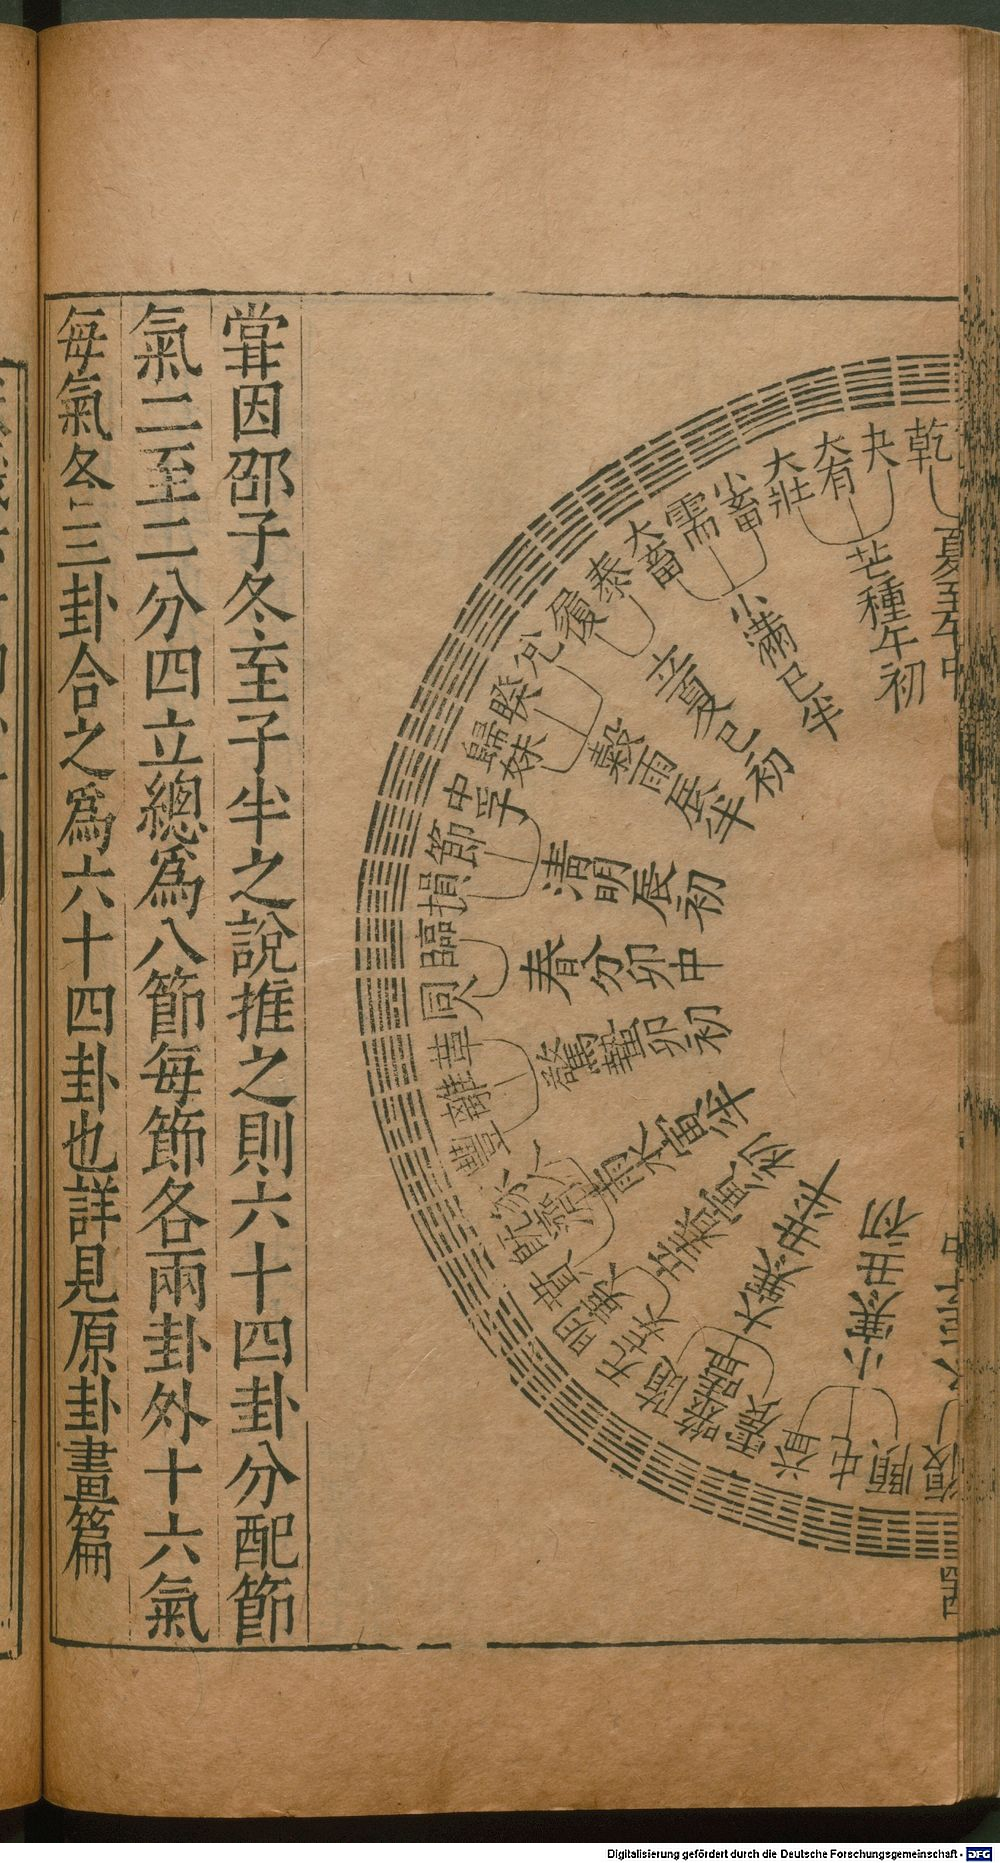 乾
夬
大有
大壯
小畜
需
大畜
泰
履
兌
睽
歸妹
中孚
節
損
臨
同人
革
離
豐
家人
既濟
賁
明夷
无妄
隨
噬嗑
震
益
屯
頤
復
夏至午中
芒種午初
小滿巳半
立夏巳初
穀雨辰半
清明辰初
春分卯中
驚蟄卯初
雨水寅半
立春寅初
大寒丑半
小寒丑初
嘗因邵子冬至子半之說推之則六十四卦分配節
氣二至二分四立總爲八節每節各兩卦外十六氣
每氣各三卦合之爲六十四卦也詳見原卦畫篇
Digitalisierung gefördert durch die Deutsche Forschungsgemeinschaft - DFG